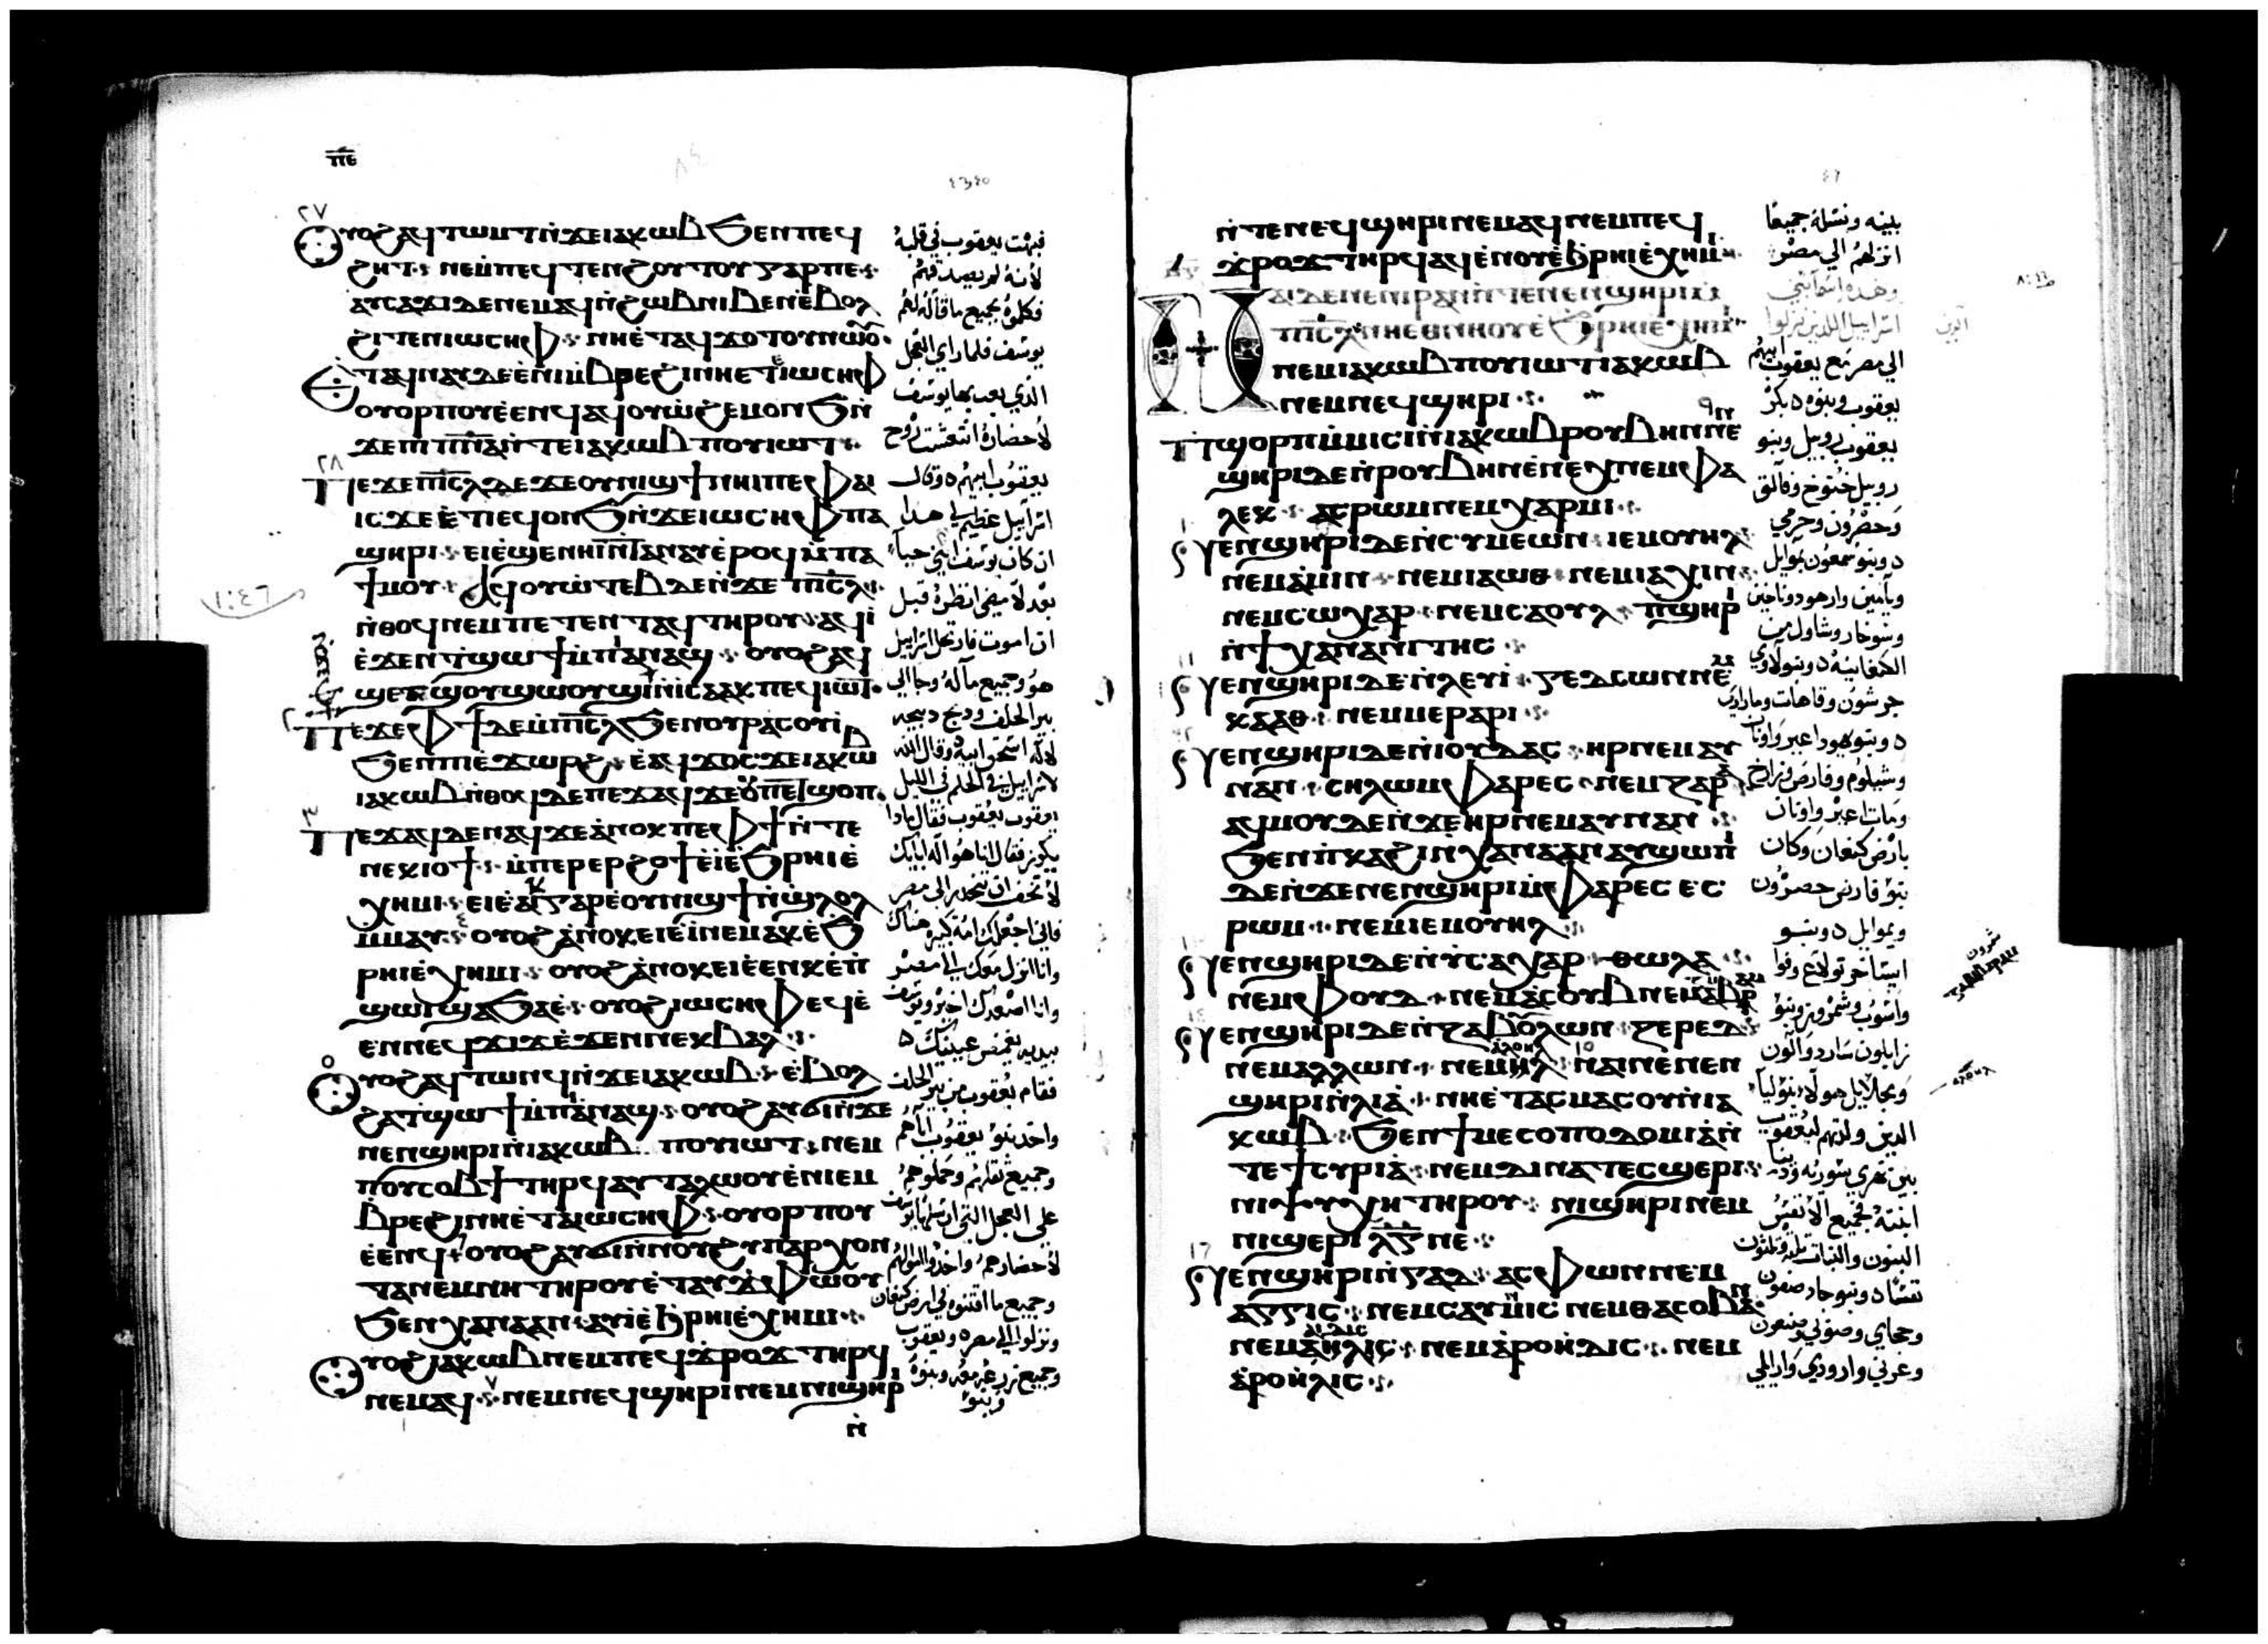 ⲡⲉ
٢٧
ⲟⲩⲟϩ ⲁϥⲧⲱⲙⲧ ⲛ̀ϫⲉ ⲓⲁⲕⲱⲃ ϧⲉⲛ ⲡⲉϥ
ϩⲏⲧ ⲛⲉⲙⲡⲉϥⲧⲉⲛϩⲟⲩⲧⲟⲩ ⲅⲁⲣ ⲡⲉ
ⲁⲩⲥⲁϫⲓ ⲇⲉ ⲛⲉⲙⲁϥ ⲛ̀ϩⲱⲃ ⲛⲓⲃⲉⲛ ⲉ̀ⲃⲟⲗ
ϩⲓⲧⲉⲛ ⲓⲱⲥⲏⲫ ⲛⲏ ⲉ̀ⲧⲁϥϫⲟⲧⲟⲩ ⲛⲱⲟⲩ
ⲉⲧⲁϥⲛⲁⲩ ⲇⲉ ⲉ̀ⲛⲓⲙ̀ⲃⲣⲉϩⲓ ⲛⲏ ⲉⲧ ⲓⲱⲥⲏⲫ
ⲟⲩⲟⲣⲡⲟⲩ ⲉ̀ⲉⲛϥ ⲁϥⲓⲟⲩⲱϩⲉⲙⲟⲛϧ ⲛ̀
ϫⲉ ⲡⲓⲡ̅ⲛ̅ⲁ̅ ⲛ̀ⲧⲉ ⲓⲁⲕⲱⲃ ⲡⲟⲩⲓⲱⲧ
٢٨
ⲡⲉϫⲉ ⲡⲓⲥ̅ⲗ̅ ⲇⲉ ϫⲉ ⲟⲩⲛⲓϣϯ ⲛⲏⲓ ⲡⲉ ⲫⲁⲓ
ⲓⲥϫⲉ ⲉ̀ⲧⲓ ⲉϥⲟⲛϧ ⲛ̀ϫⲉ ⲓⲱⲥⲏⲫ ⲡⲁ
ϣⲏⲣⲓ ⲉⲓⲉ̀ϣⲉⲛⲏⲓ ⲛ̀ⲧⲁⲛⲁⲩ ⲉ̀ⲣⲟϥ ⲙ̀ⲡⲁ
ϯⲙⲟⲩ ⲁϥⲟⲩⲱⲧⲉⲃ ⲇⲉ ⲛ̀ϫⲉ ⲡⲓⲥ̅ⲗ̅
ⲛ̀ⲑⲟϥ ⲛⲉⲙ ⲡⲉⲧⲉⲛⲧⲁϥ ⲧⲏⲣⲟⲩ ⲁϥⲓ̀
ⲉ̀ϫⲉⲛ ϯϣⲱϯ ⲙ̀ⲡⲓⲁ̀ⲛⲁϣ ⲟⲩⲟϩ ⲁϥ
ϣⲉⲧϣⲟⲩϣⲱⲟⲩϣⲓ ⲛ̀ⲓⲥⲁⲁⲕ ⲡⲉϥⲓⲱⲧ
٢
ⲡⲉϫⲉ ⲫϯ ⲇⲉ ⲙ̀ⲡⲓⲥ̅ⲗ̅ ϧⲉⲛ ⲟⲩⲣⲁⲥⲟⲩⲓ̀
ϧⲉⲛ ⲡⲓⲉ̀ϫⲱⲣϩ ⲉ̀ⲁϥϫⲟⲥ ϫⲉ ⲓⲁⲕⲱⲃ
ⲓⲁⲕⲱⲃ ⲛ̀ⲑⲟϥ ⲇⲉ ⲡⲉϫⲁϥ ϫⲉ ⲟⲩ ⲡⲉⲧϣⲟⲡ
٣
ⲡⲉϫⲁϥ ⲇⲉ ⲛⲁϥ ϫⲉ ⲁ̀ⲛⲟⲕ ⲡⲉ ⲫϯ ⲛ̀ⲧⲉ
ⲛⲉⲕⲓⲟϯ ⲙ̀ⲡⲉⲣⲉⲣϩⲟϯ ⲉ̀ⲓ̀ ⲉ̀ϧⲣⲏⲓ ⲉ̀
ⲭⲏⲙⲓ ⲉⲓⲉ̀ⲁⲓⲕ ⲅⲁⲣ ⲉ̀ⲟⲩⲛⲓϣϯ ⲛ̀ϣ̀ⲗⲟⲗ
ⲙ̀ⲙⲁⲩ ⲟⲩⲟϩ ⲁ̀ⲛⲟⲕ ⲉⲓⲉ̀ⲓ̀ ⲛⲉⲙⲁⲕ ⲉ̀ϧ
ⲣⲏⲓ ⲉ̀ⲭⲏⲙⲓ ⲟⲩⲟϩ ⲁ̀ⲛⲟⲕ ⲉⲓⲉ̀ⲉⲛⲕ ⲉ̀ⲡ̀
ϣⲱⲓ ϣⲁ ϧⲁⲉ̀ ⲟⲩⲟϩ ⲓⲱⲥⲏⲫ ⲉϥⲉ̀
ⲉⲛ ⲛⲉϥϫⲓϫ ⲉ̀ϫⲉⲛ ⲛⲉⲕⲃⲁⲗ
٥
ⲟⲩⲟϩ ⲁϥⲧⲱⲛϥ ⲛ̀ϫⲉ ⲓⲁⲕⲱⲃ ⲉ̀ⲃⲟⲗ
ϩⲁ ϯϣⲱϯ ⲙ̀ⲡⲓⲁ̀ⲛⲁϣ ⲟⲩⲟϩ ⲁⲩϭⲓ ⲛ̀ϫⲉ
ⲛⲉⲛϣⲏⲣⲓ ⲛ̀ⲓⲁⲕⲱⲃ ⲡⲟⲩⲓⲱⲧ ⲛⲉⲙ
ⲡⲟⲩⲥⲟⲃϯ ⲧⲏⲣϥ ⲁⲩⲧⲁⲗⲱⲟⲩ ⲉ̀ⲛⲓⲉⲙ
ⲃⲣⲉϩⲓ ⲛⲏ ⲉ̀ⲧⲁ ⲓⲱⲥⲏⲫ ⲟⲩⲟⲣⲡⲟⲩ
ⲉ̀ⲉⲛϥ ⲟⲩⲟϩ ⲁⲩϭⲓ ⲛ̀ⲛⲟⲩϩⲩⲡⲁⲣⲭⲟⲛ
ⲧⲁ ⲛⲉⲙ ⲛⲏ ⲧⲏⲣⲟⲩ ⲉ̀ⲧⲁⲩϫ̀ⲫⲱⲟⲩ
ϧⲉⲛ ⲭⲁⲛⲁⲁⲛ ⲁⲩⲓ̀ ⲉ̀ϧⲣⲏⲓ ⲉ̀ⲭⲏⲙⲓ
ⲟⲩⲟϩ ⲓⲁⲕⲱⲃ ⲛⲉⲙ ⲡⲉϥϫ̀ⲣⲟϫ ⲧⲏⲣϥ
ⲛⲉⲙⲁϥ ⲛⲉⲙ ⲛⲉϥϣⲏⲣⲓ ⲛⲉⲙ ⲛⲓϣⲏⲣⲓ
ⲛ̀
١:٤٦
فبهت يعقوب في قلبه
لانه لم يصدقهم
فكلموه بجميع ما قاله لهم
يوسف فلما راي العجل
الذي بعث بها يوسف
لاحضاره انتعشت روح
يعقوب ابيهم وقال
اسرائيل عظيم لي هذا
ان كان يوسف ابني حيا
بعد لامضي انظره قبل
ان اموت فارتحل اسرائيل
هو وجميع ماله وجا الي
بير الحلف وذبح ذبيحه
لاله اسحق ابيه وقال الله
لاسرائيل في الحلم في الليل
يعقوب يعقوب فقال ماذا
يكون فقال انا هو اله ابايك
لا تخف ان تنحدر الي مصر
فاني اجعلك امة كبيره هناك
وانا انزل معك الي مصر
وانا اصعدك اخيرا ويوسف
بيديه يغمض عينيك
فقام يعقوب من بير الحلف
واخذ بنو يعقوب اباهم
وجميع ثقلهم وحملوهم
علي العجل التي ارسلها يوسف
لاحضارهم واخذوا اموالهم
وجميع ما اقتنوه في ارض كنعان
ونزلوا الي مصر ويعقوب
وجميع زرعه معه وبنوه
وبنو
ⲛ̀ⲧⲉ ⲛⲉϥϣⲏⲣⲓ ⲛⲉⲙⲁϥ ⲛⲉⲙ ⲡⲉϥ
ϫ̀ⲣⲟϫ ⲧⲏⲣϥ ⲁϥⲉⲛⲟⲩ ⲉ̀ϧⲣⲏⲓ ⲉ̀ⲭⲏⲙⲓ
ⲛⲁⲓ ⲇⲉ ⲛⲉ ⲛⲓⲣⲁⲛ ⲛ̀ⲧⲉ ⲛⲉⲛϣⲏⲣⲓ ⲙ̀
ⲡⲓⲥ̅ⲗ̅ ⲛⲏ ⲉⲑⲛⲏⲟⲩ ⲉ̀ϧⲣⲏⲓ ⲉ̀ⲭⲏⲙⲓ
ⲛⲉⲙ ⲓⲁⲕⲱⲃ ⲡⲟⲩⲓⲱⲧ ⲓⲁⲕⲱⲃ
ⲛⲉⲙ ⲛⲉϥϣⲏⲣⲓ
٩
ⲡⲓϣⲟⲣⲡ ⲙ̀ⲙⲓⲥⲓ ⲛ̀ⲓⲁⲕⲱⲃ ⲣⲟⲩⲃⲏⲛ ⲛⲉⲛ
ϣⲏⲣⲓ ⲇⲉ ⲛ̀ⲣⲟⲩⲃⲏⲛ ⲉ̀ⲛⲉⲭ ⲛⲉⲙ ⲫⲁ
ⲗⲉⲕ ⲁⲥⲣⲱⲙ ⲛⲉⲙ ⲭⲁⲣⲙⲓ
ⲛⲉⲛϣⲏⲣⲓ ⲇⲉ ⲛ̀ⲥⲩⲙⲉⲱⲛ ⲓⲉⲙⲟⲩⲏⲗ
ⲛⲉⲙ ⲁ̀ⲙⲓⲛ ⲛⲉⲙ ⲓⲁⲱⲑ ⲛⲉⲙ ⲓⲁⲭⲓⲛ
ⲛⲉⲙ ⲥⲱⲭⲁⲣ ⲛⲉⲙ ⲥⲁⲟⲩⲗ ⲡϣⲏⲣⲓ
ⲛ̀ϯⲭⲁⲛⲁⲛⲓⲧⲏⲥ
١١
ⲛⲉⲛϣⲏⲣⲓ ⲇⲉ ⲛ̀ⲗⲉⲩⲓ ⲅⲉⲇⲥⲱⲛ ⲛⲉⲙ
ⲕⲁⲁⲑ ⲛⲉⲙ ⲙⲉⲣⲁⲣⲓ
ⲛⲉⲛϣⲏⲣⲓ ⲇⲉ ⲛ̀ⲓⲟⲩⲇⲁⲥ ⲏⲣ ⲛⲉⲙ ⲁⲩ
ⲛⲁⲛ ⲥⲏⲗⲱⲙ ⲫⲁⲣⲉⲥ ⲛⲉⲙ ⲍⲁⲣⲁ
ⲁϥⲙⲟⲩ ⲇⲉ ⲛ̀ϫⲉ ⲏⲣ ⲛⲉⲙ ⲁⲩⲛⲁⲛ
ϧⲉⲛ ⲡ̀ⲕⲁϩⲓ ⲛ̀ⲭⲁⲛⲁⲁⲛ ⲁⲩϣⲱⲡⲓ
ⲇⲉ ⲛ̀ϫⲉ ⲛⲉⲛϣⲏⲣⲓ ⲙ̀ⲫⲁⲣⲉⲥ ⲉⲥ
ⲣⲱⲙ ⲛⲉⲙ ⲓⲉⲙⲟⲩⲏⲗ
ⲛⲉⲛϣⲏⲣⲓ ⲇⲉ ⲛ̀ⲩⲥⲁⲭⲁⲣ ⲑⲱⲗⲁ
ⲛⲉⲙ ⲫⲟⲩⲇ ⲛⲉⲙ ⲁ̀ⲥⲟⲩⲃ
ⲛⲉⲛϣⲏⲣⲓ ⲇⲉ ⲛ̀ⲍⲁⲃⲟⲩⲗⲱⲛ ⲍⲉⲣⲉⲇ
ⲛⲉⲙ ⲁⲗⲗⲱⲛ ⲛⲉⲙ ⲛⲁⲓ ⲛⲉ ⲛⲉⲛ
١٥
ϣⲏⲣⲓ ⲛ̀ⲗⲓⲁ̀ ⲛⲏ ⲉ̀ⲧⲁⲥⲙⲁⲥⲟⲩ ⲛ̀ⲓⲁ
ⲕⲱⲃ ϧⲉⲛ ϯⲙⲉⲥⲟⲡⲟⲇⲟⲙⲓⲁ̀ ⲛ̀
ⲧⲉ ϯⲥⲩⲣⲓⲁ̀ ⲛⲉⲙ ⲇⲓⲛⲁ ⲧⲉϥϣⲉⲣⲓ
ⲛⲓⲯⲩⲭⲏ ⲧⲏⲣⲟⲩ ⲛⲓϣⲏⲣⲓ ⲛⲉⲙ
ⲛⲓϣⲉⲣⲓ ⲗ̅ⲅ̅ ⲛⲉ
١٦
ⲛⲉⲛϣⲏⲣⲓ ⲛ̀ⲅⲁⲇ ⲁⲥⲫⲱⲛ ⲛⲉⲙ
ⲁⲅⲅⲓⲥ ⲛⲉⲙ ⲥⲁⲩⲛⲓⲥ ⲛⲉⲙ ⲑⲁⲥⲟⲃⲁⲛ
ⲛⲉⲙ ⲁⲏⲗⲓⲥ ⲛⲉⲙ ⲁ̀ⲣⲟⲏⲇⲓⲥ ⲛⲉⲙ
ⲁ̀ⲣⲟⲏⲗⲓⲥ
بنيه ونسله جميعا
انزلهم الي مصر
وهذه اسما بني
اسراييل الذين نزلوا
الي مصر مع يعقوب ابيهم
يعقوب وبنوه بكر
يعقوب روبيل وبنو
روبيل خنوخ وفالق
وحصرون وحرمي
وبنو شمعون يموايل
ويامين وارهود وناخين
وسوخار وشاول بن
الكنعانيه وبنو لاوي
جرشون وقاهات وماراري
وبنو يهودا عير واونان
وشيلوم وفارص وزارح
ومات عير واونان
بارض كنعان وكان
بنو فارص حصرون
ويموايل وبنو
ايساخر تولاع وفوا
واشوب وشمرون وبنو
زابلون سارد والون
الذين ولدتهم ليعقوب
ابنته فجميع الانفس
نفسا وبنو جاد صفون